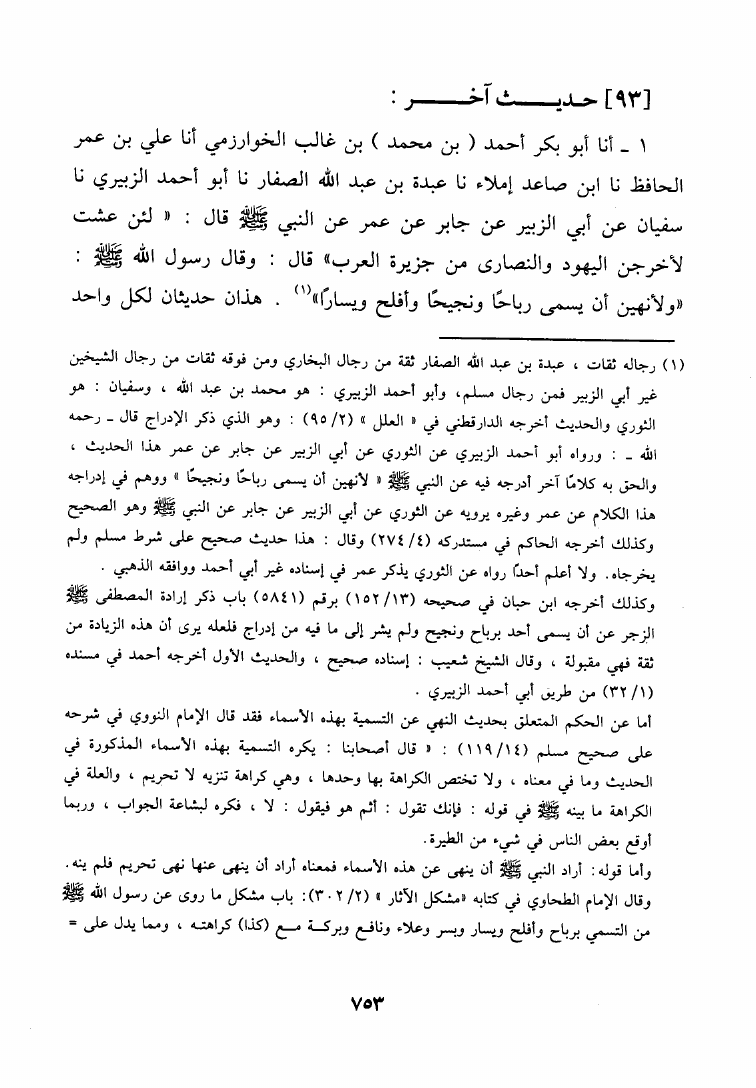 [٩٣] حديـــــث آخـــــــر :
١ ـ أنا أبو بكر أحمد ( بن محمد ) بن غالب الخوارزمي أنا علي بن عمر
الحافظ نا ابن صاعد إملاء نا عبدة بن عبد الله الصفار نا أبو أحمد الزبيري نا
سفيان عن أبي الزبير عن جابر عن عمر عن النبي ﷺ قال : « لئن عشت
لأخرجن اليهود والنصارى من جزيرة العرب» قال : وقال رسول الله ﷺ :
«ولأنهين أن يسمى رباحًا ونجيحًا وأفلح ويسارًا»(١) . هذان حديثان لكل واحد
(١) رجاله ثقات ، عبدة بن عبد الله الصفار ثقة من رجال البخاري ومن فوقه ثقات من رجال الشيخين
غير أبي الزبير فمن رجال مسلم، وأبو أحمد الزبيري : هو محمد بن عبد الله ، وسفيان : هو
الثوري والحديث أخرجه الدارقطني في « العلل » (٩٥/٢) : وهو الذي ذكر الإدراج قال ـ رحمه
الله ـ : ورواه أبو أحمد الزبيري عن الثوري عن أبي الزبير عن جابر عن عمر هذا الحديث ،
والحق به كلامًا آخر أدرجه فيه عن النبي ﷺ « لأنهين أن يسمى رباحًا ونجيحًا » ووهم في إدراجه
هذا الكلام عن عمر وغيره يرويه عن الثوري عن أبي الزبير عن جابر عن النبي ﷺ وهو الصحيح
وكذلك أخرجه الحاكم في مستدركه (٢٧٤/٤) وقال : هذا حديث صحيح على شرط مسلم ولم
يخرجاه. ولا أعلم أحدًا رواه عن الثوري يذكر عمر في إسناده غير أبي أحمد ووافقه الذهبي .
وكذلك أخرجه ابن حبان في صحيحه (١٥٢/١٣) برقم (٥٨٤١) باب ذكر إرادة المصطفى ﷺ
الزجر عن أن يسمى أحد برباح ونجيح ولم يشر إلى ما فيه من إدراج فلعله يرى أن هذه الزيادة من
ثقة فهي مقبولة ، وقال الشيخ شعيب : إسناده صحيح ، والحديث الأول أخرجه أحمد في مسنده
(٣٢/١) من طريق أبي أحمد الزبيري .
أما عن الحكم المتعلق بحديث النهي عن التسمية بهذه الأسماء فقد قال الإمام النووي في شرحه
على صحيح مسلم (١١٩/١٤) : « قال أصحابنا : يكره التسمية بهذه الأسماء المذكورة في
الحديث وما في معناه ، ولا تختص الكراهة بها وحدها ، وهي كراهة تنزيه لا تحريم ، والعلة في
الكراهة ما بينه ﷺ في قوله : فإنك تقول : أثم هو فيقول : لا ، فكره لبشاعة الجواب ، وربما
أوقع بعض الناس في شيء من الطيرة.
وأما قوله: أراد النبي ﷺ أن ينهى عن هذه الأسماء فمعناه أراد أن ينهى عنها نهى تحريم فلم ينه.
وقال الإمام الطحاوي في كتابه «مشكل الآثار » (٣٠٢/٢): باب مشكل ما روى عن رسول الله ﷺ
من التسمي برباح وأفلح ويسار ويسر وعلاء ونافع وبركة مع (كذا) كراهته ، ومما يدل على =
٧٥٣